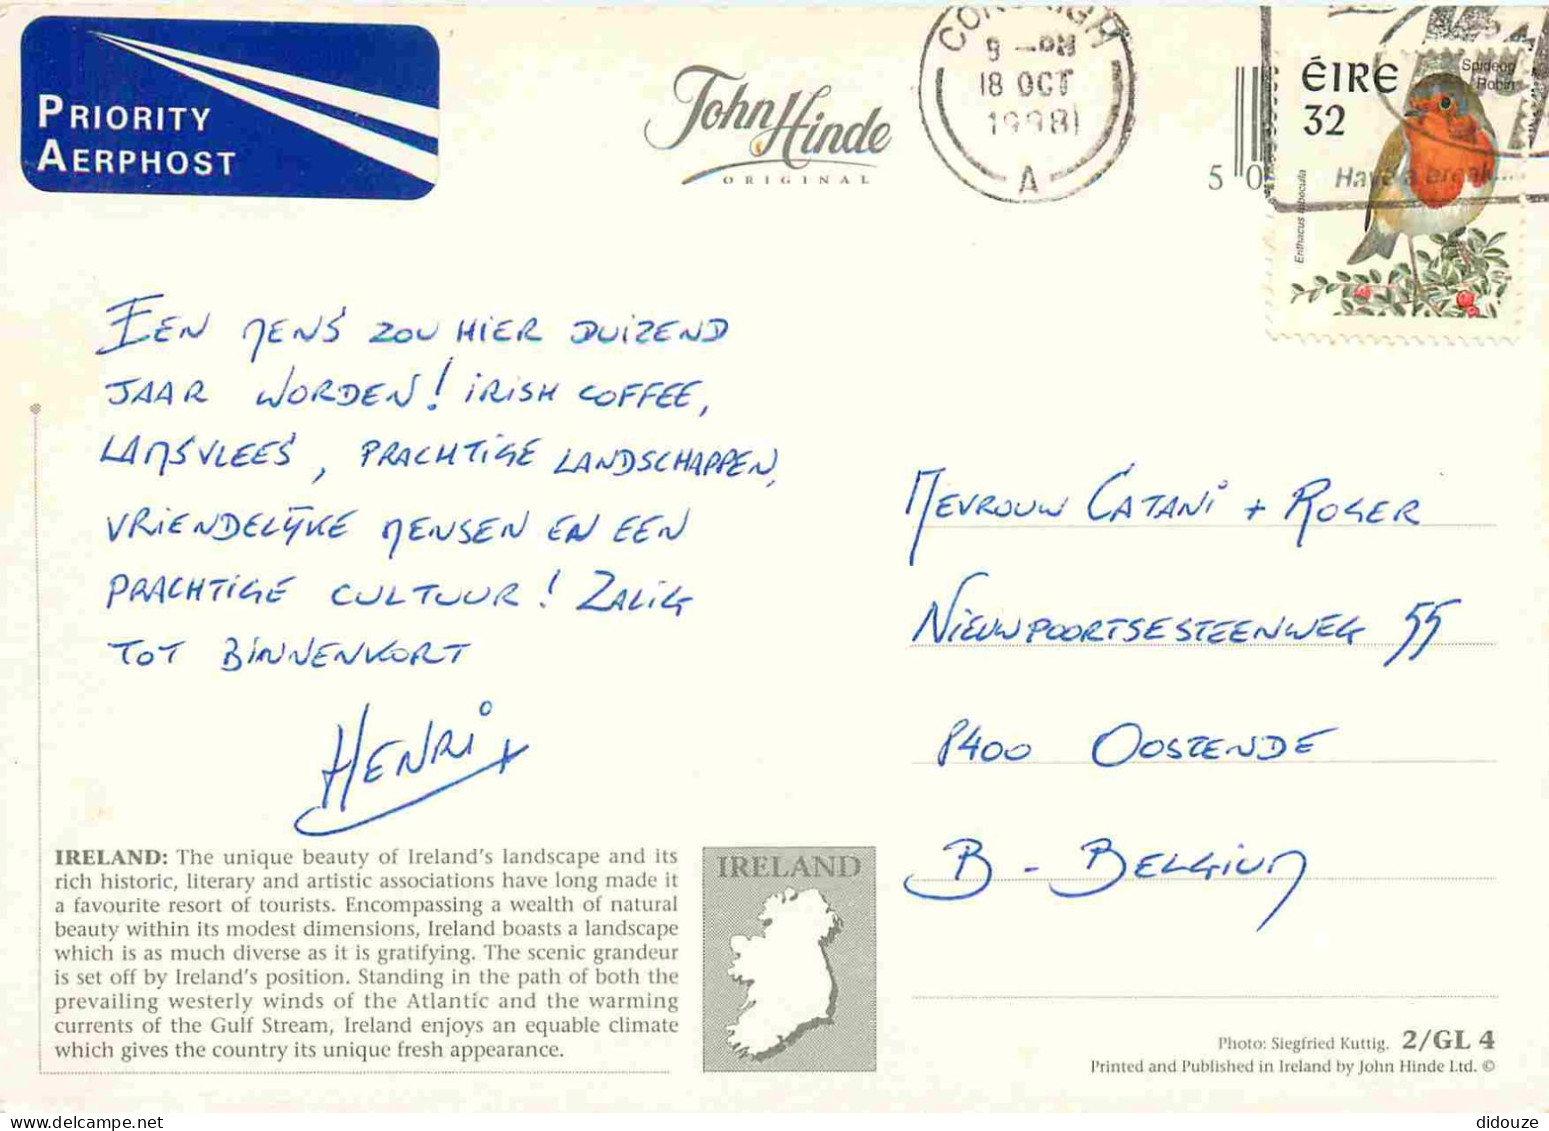 PRIORITY
AERPHOST
John Hinde
ORIGINAL
9 -PM
18 OCT
1998
A
5 0
ÉIRE
32
Spideog
Robin
Erithacus rubecula
Have a break...
EEN MENS ZOU HIER DUIZEND
JAAR WORDEN! IRISH COFFEE,
LAMSVLEES, PRACHTIGE LANDSCHAPPEN,
VRIENDELIJKE MENSEN EN EEN
PRACHTIGE CULTUUR! ZALIG
TOT BINNENKORT
HENRI x
MEVROUW CATANI + ROGER
NIEUWPOORTSESTEENWEG 55
8400 OOSTENDE
B - BELGIUM
IRELAND: The unique beauty of Ireland's landscape and its
rich historic, literary and artistic associations have long made it
a favourite resort of tourists. Encompassing a wealth of natural
beauty within its modest dimensions, Ireland boasts a landscape
which is as much diverse as it is gratifying. The scenic grandeur
is set off by Ireland's position. Standing in the path of both the
prevailing westerly winds of the Atlantic and the warming
currents of the Gulf Stream, Ireland enjoys an equable climate
which gives the country its unique fresh appearance.
IRELAND
Photo: Siegfried Kuttig. 2/GL 4
Printed and Published in Ireland by John Hinde Ltd. ©
didouze